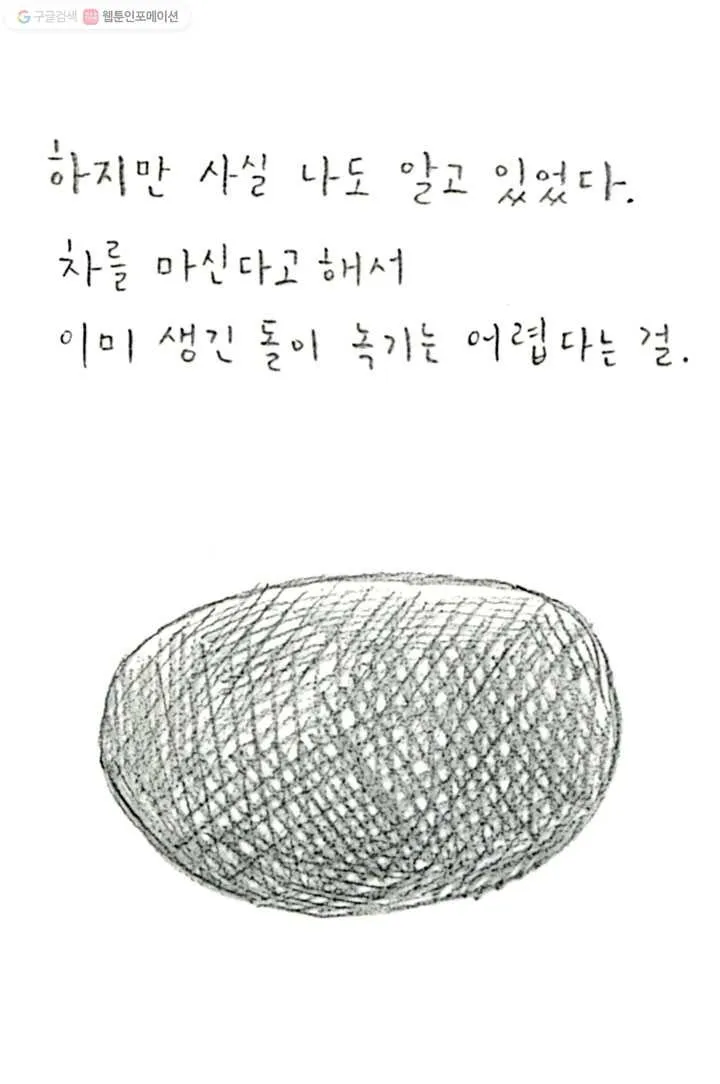 구글검색 웹툰인포메이션
하지만 사실 나도 알고 있었다.
차를 마신다고 해서
이미 생긴 돌이 녹기는 어렵다는 걸.